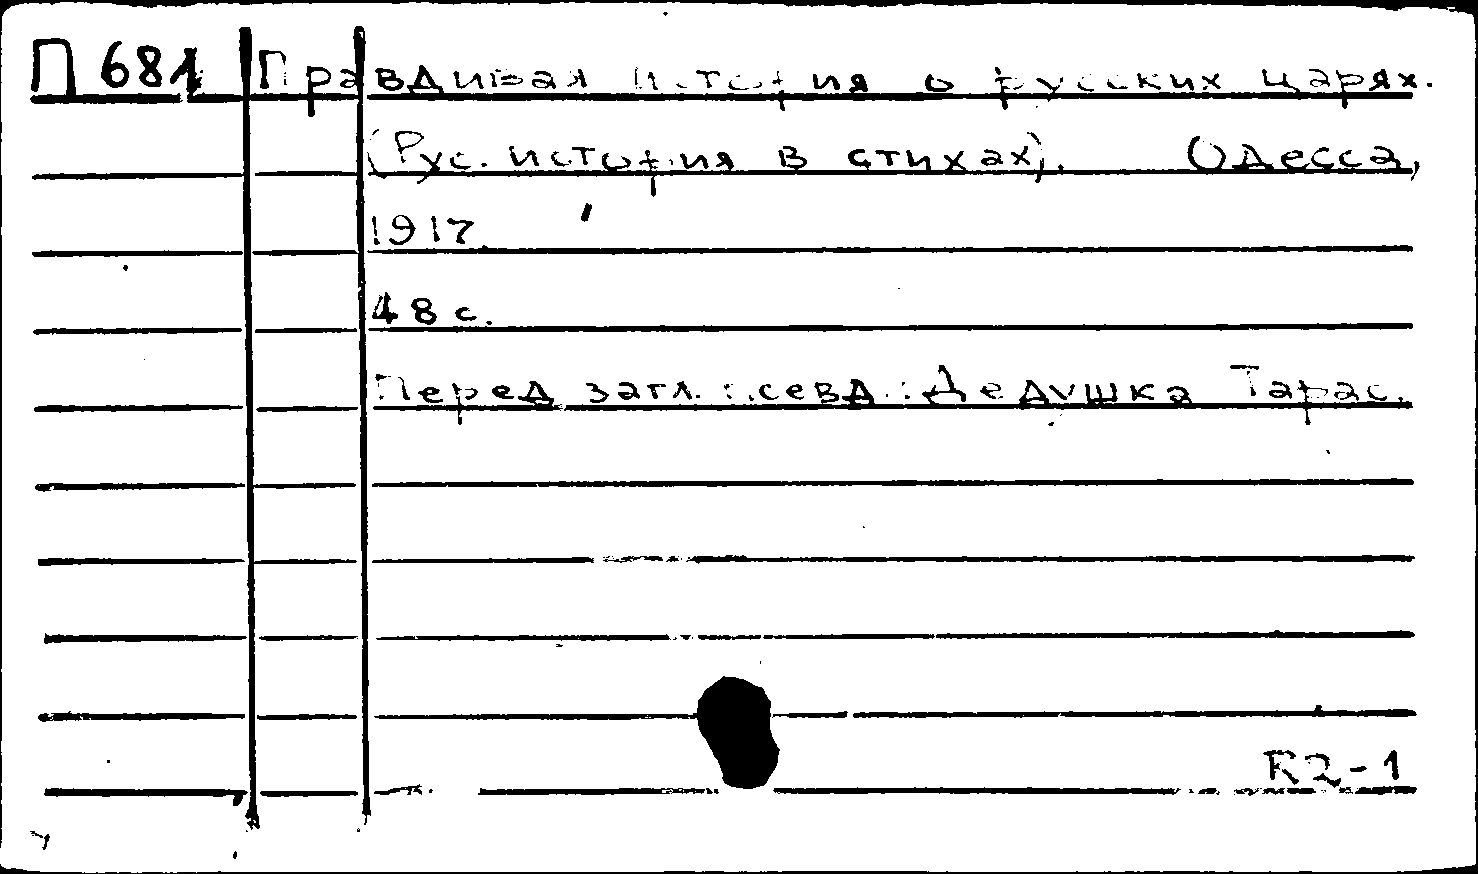 П 681 Правдивая история о русских царях.
(Рус. история в стихах). Одесса,
1917.
48 с.
Перед загл. псевд.: Дедушка Тарас.
R2-1